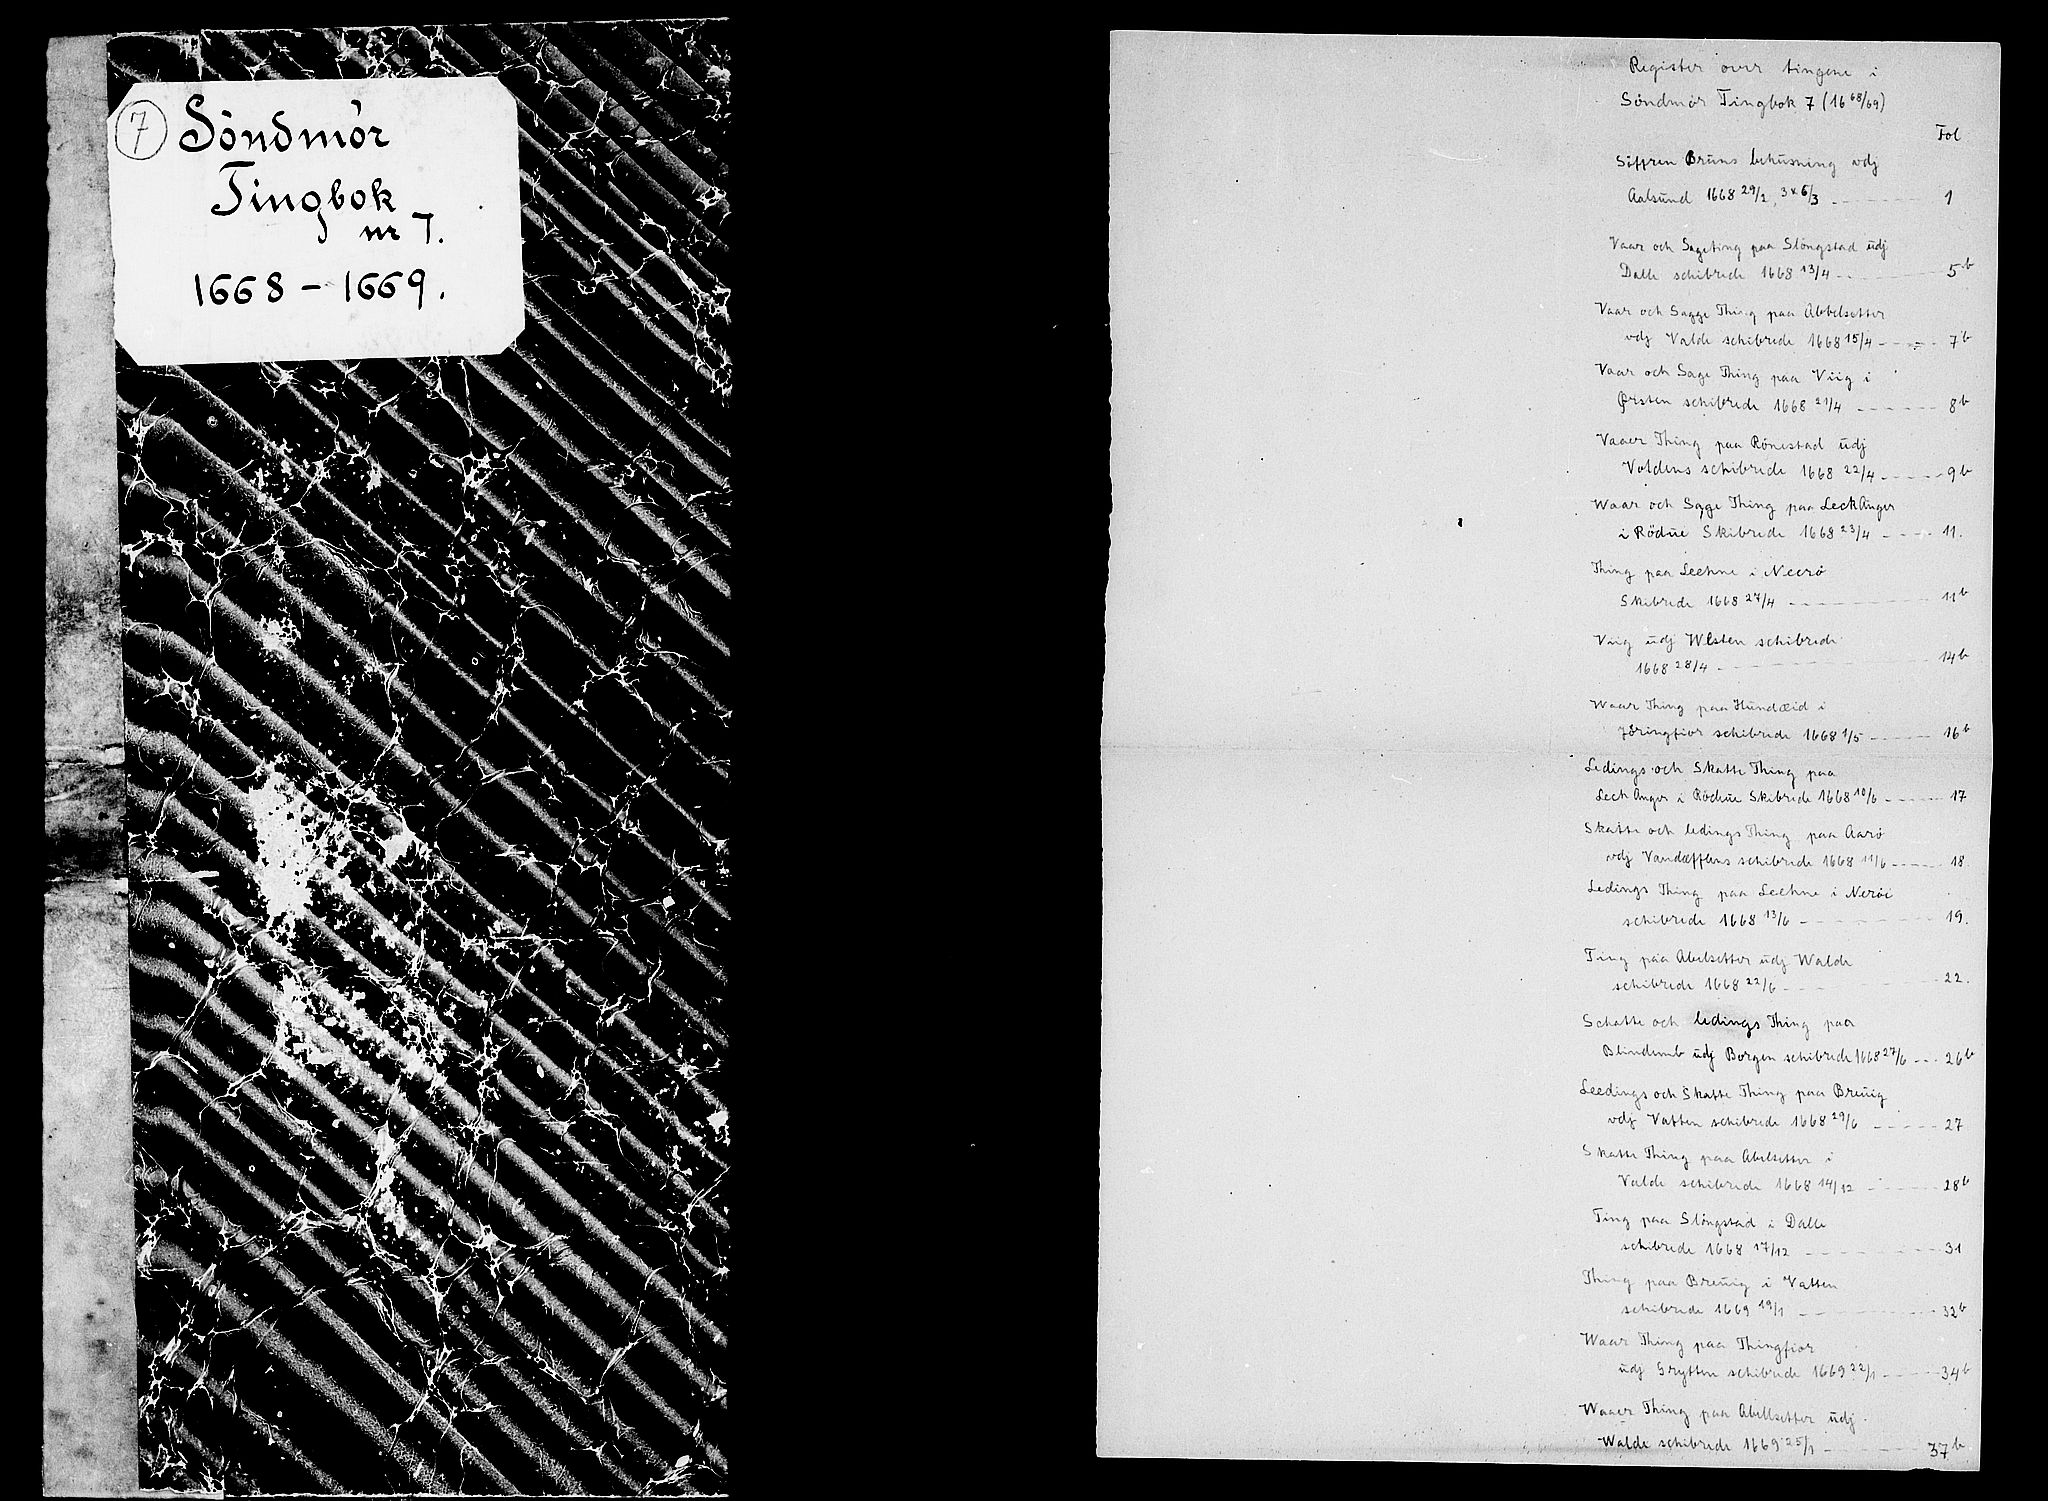 7 Söndmör
Tingbok
nr 7.
1668 – 1669.
Register over tingene i
Söndmör Tingbok 7 (16 68/69)
Fol
Söffren Bruns behusning vdj
Aalsund 1668 29/2, 3 x 6/3 1
Vaar och Sageting paa Slöngstad udj
Dalle schibrede 1668 13/4 5b
Vaar och Sagge Thing paa Abbelsetter
vdj Valde schibrede 1668 15/4 7b
Vaar och Sage Thing paa Viig i
Ørsten schibrede 1668 21/4 8b
Vaaer Thing paa Rönestad udj
Voldens schibrede 1668 22/4 9b
Waar och Sage Thing paa LeckAnger
i Rödue Skibrede 1668 23/4 11.
Thing paa Leehne i Neerö
Skibrede 1668 27/4 11b
Viig udj Wlsten schibrede
1668 28/4 14b
Waar Thing paa Hundæid i
Jöringfior schibrede 1668 1/5 16b
Ledings och Skatte Thing paa
Leck Anger i Rödue Skibrede 1668 10/6 17
Skatte och ledings Thing paa Aarö
vdj Vandelffuens schibrede 1668 11/6 18
Ledings Thing paa Leehne i Neröe
schibrede 1668 13/6 19.
Ting paa Abelsetter udj Walde
schibrede 1668 22/6 22.
Schatte och ledings Thing paa
Blindemb udj Borgen schibrede 1668 27/6 26b
Leedings och Skatte Thing paa Breuig
vdj Vatten schibrede 1668 29/6 27
Skatte Thing paa Abelsetter i
Valde schibrede 1668 14/12 28b
Ting paa Slöngstad i Dalle
schibrede 1668 17/12 31
Thing paa Breuig i Vatten
schibrede 1669 19/1 32b
Waar Thing paa Thingfior
udj Grytten schibrede 1669 22/1 34b
Waaer Thing paa Abellsetter udj
Walde schibrede 1669 25/1 37b